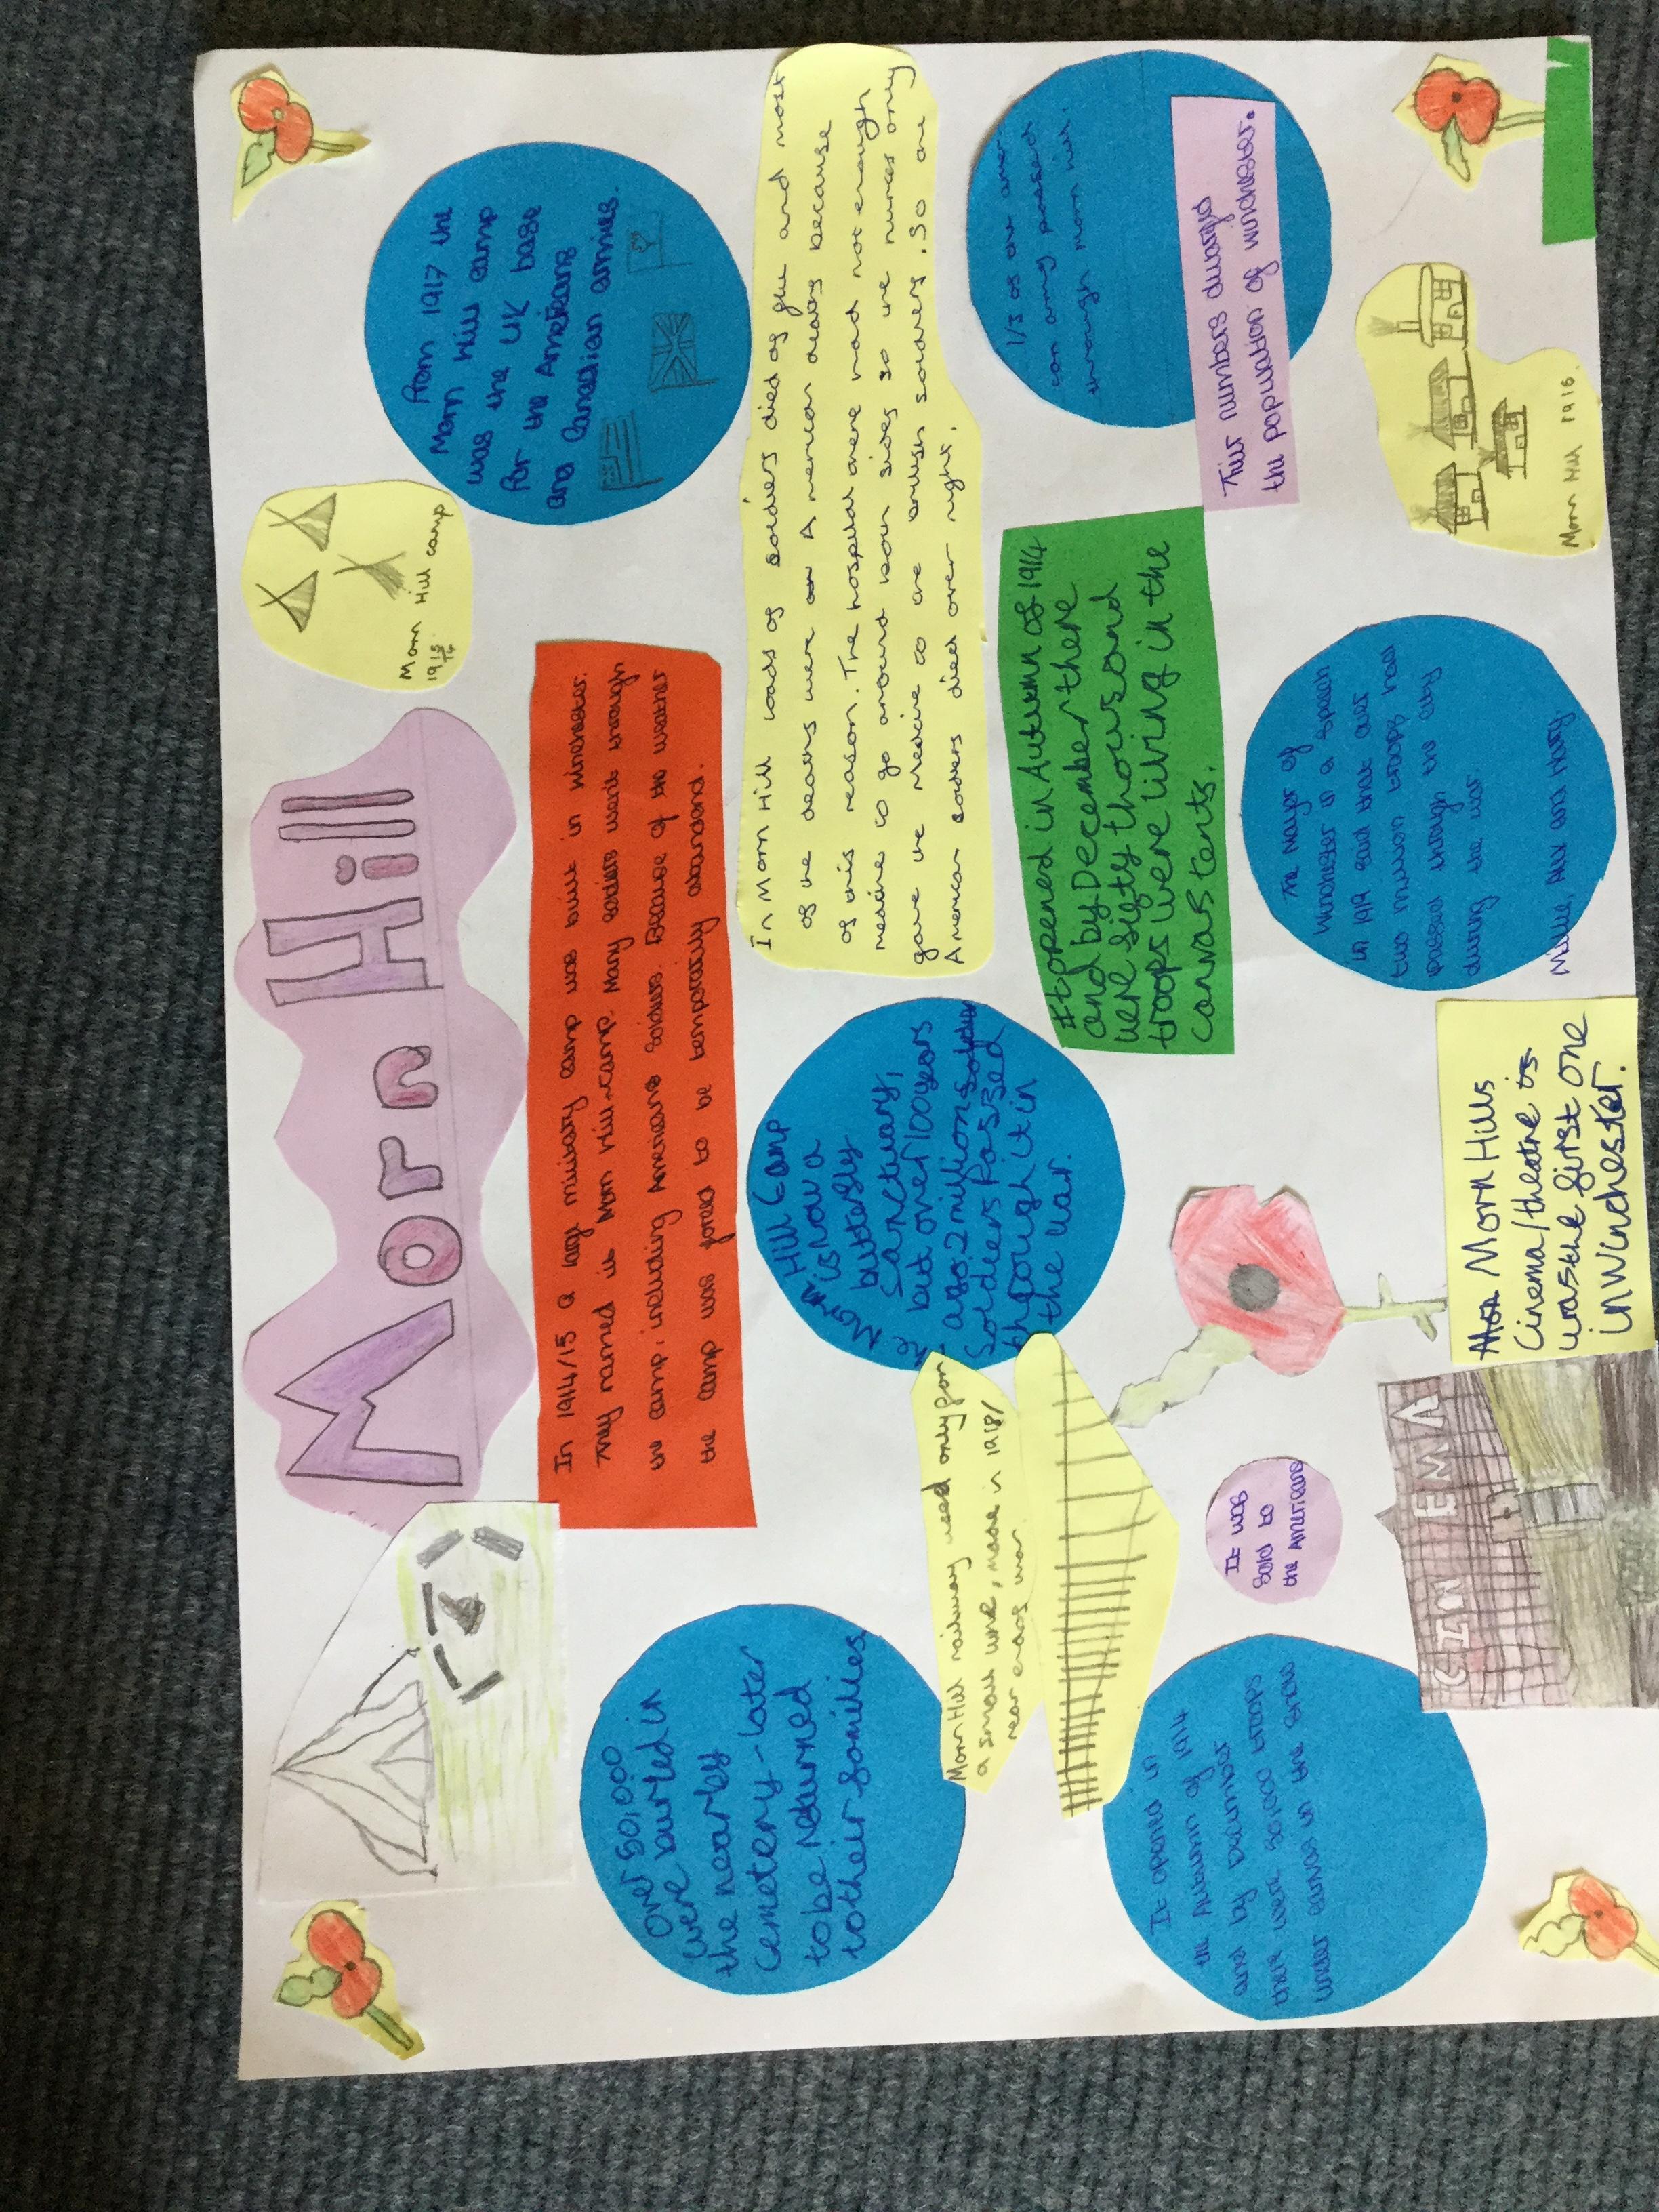 Morn Hill
Morn Hill camp
1915
14
From 1917 the
Morn Hill camp
was the UK base
for the Americans
and Canadian armies.
In 1914/15 a large military camp was built in Winchester.
They named it Morn Hill camp. Many soldiers went through
the camp, including Americans soldiers. Because of the weather
the camp was forced to be temporarily abandond.
In Morn Hill loads of soldiers died of flu and most
of the deaths were American deaths because
of this reason. The hospital there had not enough
medicine to go around both sides so the nurses only
gave the medicine to are british soldiers. So are
American soldiers died over night.
Over 50,000
were buried in
the nearby
Cemetery - later
to be returned
to their families.
Morn Hill Camp
is now a
butterfly
Sanctuary,
but over 100 years
ago 2 million
Soldiers Passed
through it in
the war.
Morn Hill railway used only for
a small time, made in 1918/
near ends war.
It opened in Autumn of 1914
and by December there
were fifty thousand
troops were living in the
canvas tents.
1/3 of the amer
can army passed
through morn hill.
Thier numbers dwarfed
the population of winchester.
It opend in
the Autumn of 1914
and by Decembor
there were 50,000 troops
under canvas in the snow
It was
Sold to
the Americans
The Mayor of
Winchester in a speach
in 1919 said that over
two million troops had
passed through the city
during the war
Millie, Alix and Harry
Morn Hill 1916.
CINEMA
Morn Hills
Cinema/theatre
was the first one
in Winchester.